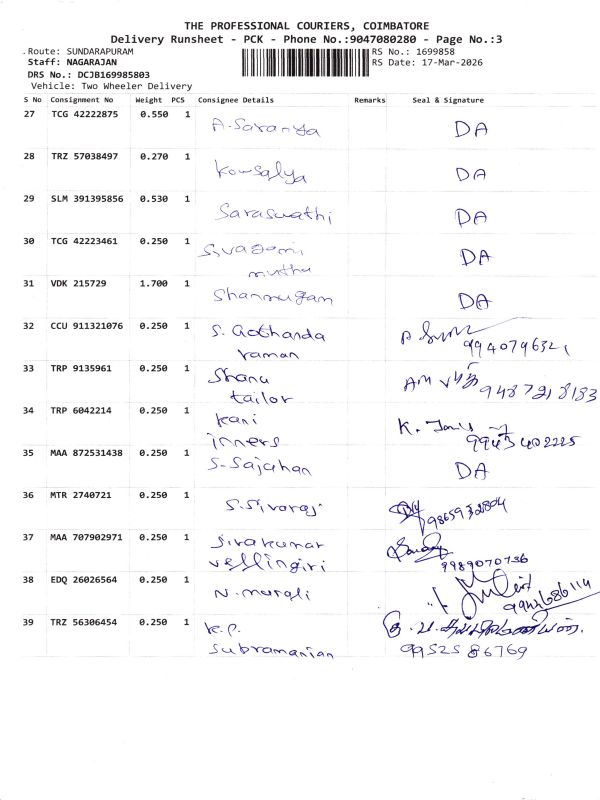 THE PROFESSIONAL COURIERS, COIMBATORE
Delivery Runsheet - PCK - Phone No.:9047080280 - Page No.:3
Route: SUNDARAPURAM RS No.: 1699858
Staff: NAGARAJAN RS Date: 17-Mar-2026
DRS No.: DCJB169985803
Vehicle: Two Wheeler Delivery
S No Consignment No Weight PCS Consignee Details Remarks Seal & Signature
27 TCG 42222875 0.550 1 A. Saranya DA
28 TRZ 57038497 0.270 1 Kowsalya DA
29 SLM 391395856 0.530 1 Saraswathi DA
30 TCG 42223461 0.250 1 Sivagami DA
muthu
31 VDK 215729 1.700 1 Shanmugam DA
32 CCU 911321076 0.250 1 S. Gothanda
raman 9940796321
33 TRP 9135961 0.250 1 Shanu
tailor 9487218183
34 TRP 6042214 0.250 1 Kani
inners 9943402225
35 MAA 872531438 0.250 1 S. Sajahan DA
36 MTR 2740721 0.250 1 S. Sivaraj 9865932804
37 MAA 707902971 0.250 1 Sivakumar
vellingiri 9989070736
38 EDQ 26026564 0.250 1 N. murali 9944686114
39 TRZ 56306454 0.250 1 K.P.
subramanian 9952586769